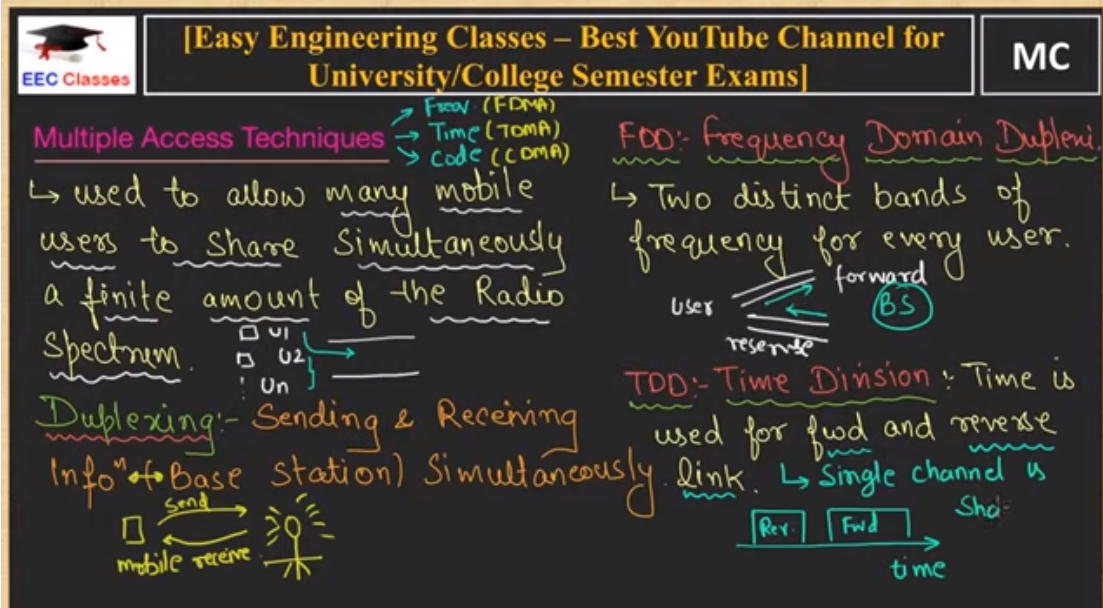 EEC Classes
[Easy Engineering Classes – Best YouTube Channel for
University/College Semester Exams]
MC
Multiple Access Techniques
→ Freq (FDMA)
→ Time (TDMA)
→ Code (CDMA)
↳ used to allow many mobile
users to share Simultaneously
a finite amount of the Radio
Spectrum.
U1
U2
Un
Duplexing:- Sending & Receiving
Infoⁿ ↔ Base Station) Simultaneously.
send
mobile receive
FDD:- Frequency Domain Duplexi.
↳ Two distinct bands of
frequency for every user.
forward
user
BS
reserve
TDD:- Time Division :- Time is
used for fwd and reverse
link. ↳ Single channel is
Sha
Rev. Fwd
time